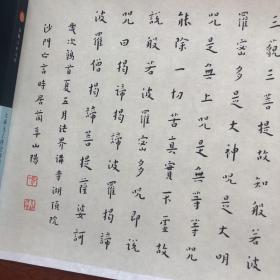 藐三菩提故知般若波
羅蜜多是大神咒是大明
咒是無上咒是無等等咒
能除一切苦真實不虛故
說般若波羅蜜多咒即說
咒曰揭諦揭諦波羅揭諦
波羅僧揭諦菩提薩婆訶
歲次鶉首夏五月法界講寺湖頂院
沙門亡言時居蘭阜山陽